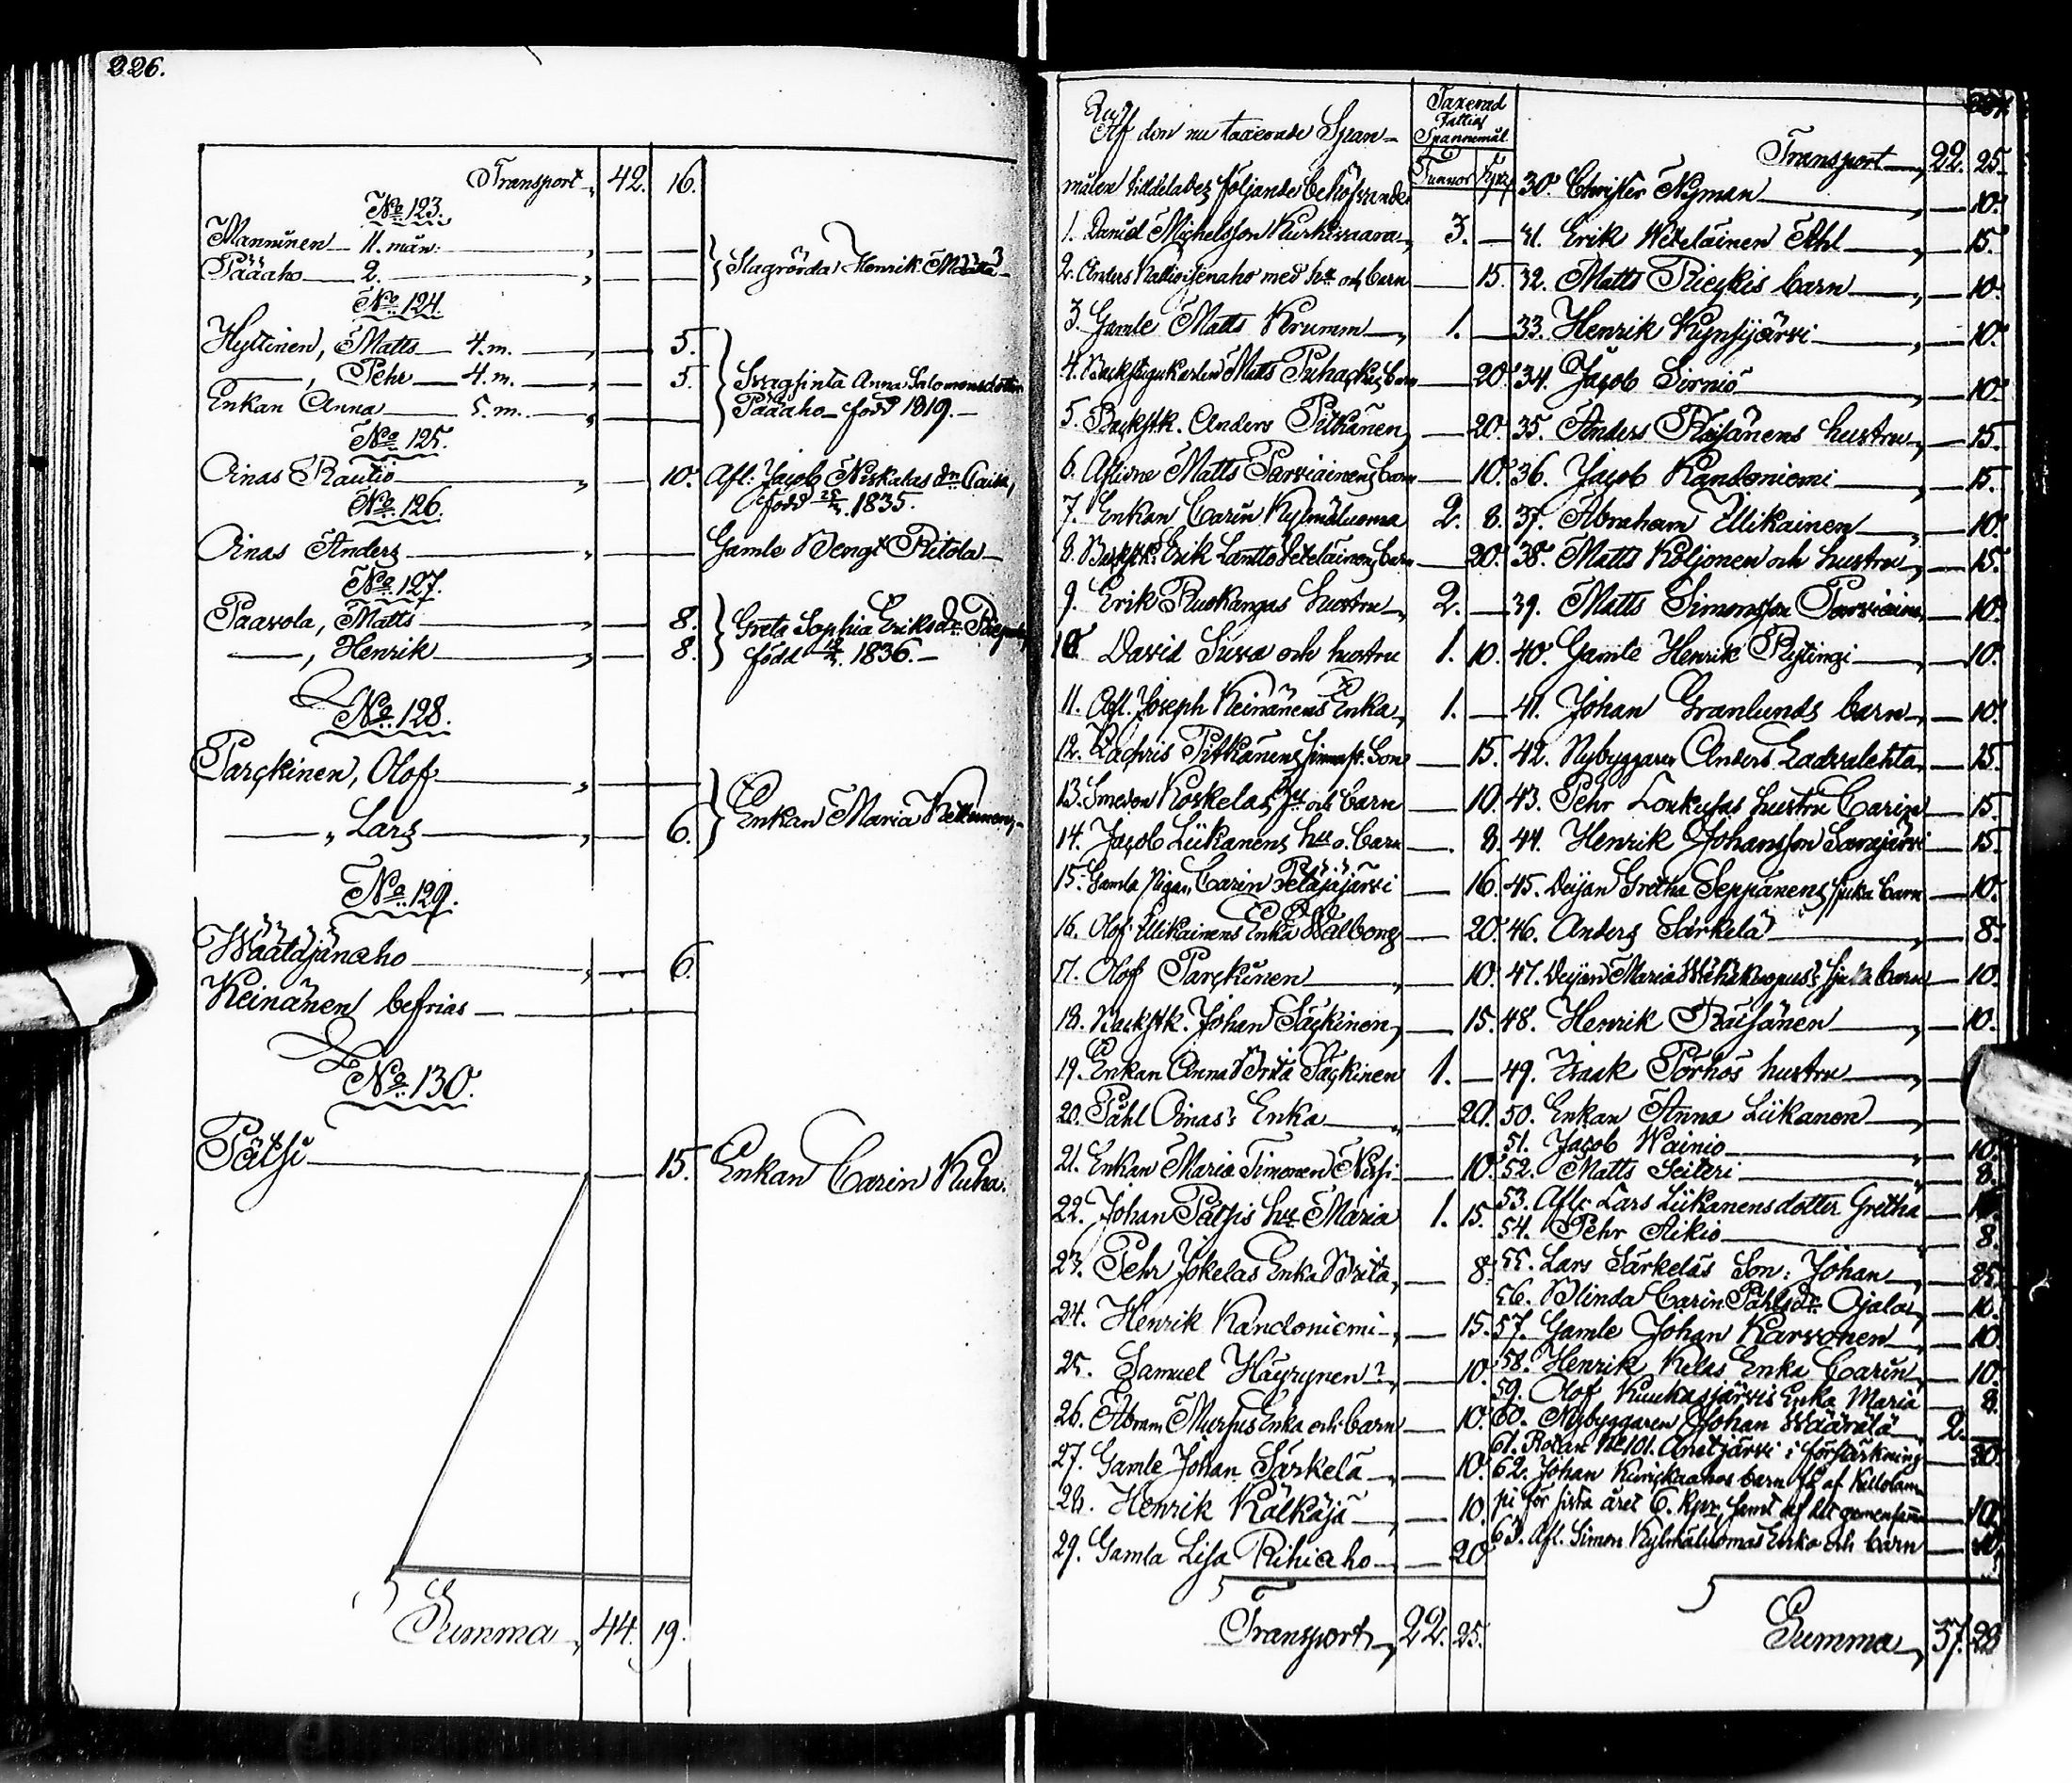 226.
Transport 42. 16.
No 123.
Manninen 11. mån:
Pääaho 2.
Slagrörda Henrik Määttä
No 124.
Hyttinen, Matts 4. m. 5.
Pehr 4. m. 5.
Enkan Anna 5. m.
Svagsinta Anna Salomonsdotter
Pääaho född 1819.
No 125.
Oinas Rautio 10.
Afl: Jacob Niskalas dr Caisa,
född 1835.
No 126.
Oinas Anders
Gamle Bengt Ritola
No 127.
Paavola, Matts 8.
Henrik 8.
Greta Sophia Eriksdr
född 1836.
No 128.
Parckinen, Olof
Lars 6.
Enkan Maria
No 129.
Wäätäjänaho 6.
Keinänen befrias
No 130.
Pätsi 15. Enkan Carin Kuha.
Summa 44. 19.
Af den nu taxerade Span-
målen tilldelades följande behöfvande
Taxerad
Fattig
Spannemål
Tunnor Kpr
1. Daniel Michelsson Kurkivaara 3.
2. Anders med hu och barn 15.
3. Gamle Matts Krumm 1.
4. Matts barn 20.
5. Backstk. Anders Pitkänen 20.
6. Aflidne Matts Parviainens barn 10.
7. Enkan Carin Kylmäluoma 2. 8.
8. Backstk. Erik Lantto Heteläinens barn 20.
9. Erik Ruokangas hustru 2.
10 David Suva och hustru 1. 10.
11. Afl. Joseph Keinänens Enka 1.
12. Zachris Pitkänens Son 15.
13. Smeden Koskelas hu och barn 10.
14. Jacob Liikanens hu o. barn 8.
15. Gamla Pigan Carin Petäjäjärvi 16.
16. Olof Illikainens Enka Walborg 20.
17. Olof Parckinen 10.
18. Backstk. Johan Säckinen 15.
19. Enkan Anna Brita Säckinen 1.
20. Påhl Oinas's Enka 20.
21. Enkan Maria Timonen Nissi 10.
22. Johan Pätsis hu Maria 1. 15.
23. Pehr Jokelas Enka Brita 8.
24. Henrik Kandoniemi 15.
25. Samuel Häyrynen 10.
26. Abram Mursus Enka och barn 10.
27. Gamle Johan Särkelä 10.
28. Henrik Kälkäjä 10.
29. Gamla Lisa Riihiaho 20.
Transport 22. 25.
Transport 22. 25.
30. Christer Nyman 10.
31. Erik Heteläinen Ahl 15.
32. Matts Rieckis barn 10.
33. Henrik Kynsijärvi 10.
34. Jacob Sirniö 10.
35. Anders Räisänens hustru 15.
36. Jacob Kandoniemi 15.
37. Abraham Illikainen 10.
38. Matts Koljonen och hustru 15.
39. Matts Simonsson Parviainen 10.
40. Gamle Henrik Rytingi 10.
41. Johan Granlunds barn 10.
42. Nybyggaren Anders 15.
43. Pehr Loukusas hustru Carin 15.
44. Henrik Johansson Sarajärvi 15.
45. Deijan Gretha Seppänens sjuka barn 10.
46. Anders Särkelä 8.
47. Deijan Maria sjuka barn 10.
48. Henrik Räisänen 10.
49. Isaak Törhös hustru
50. Enkan Anna Liikanen
51. Jacob Wainio 10.
52. Matts Seiteri 8.
53. Afl: Lars Liikanens dotter Gretha
54. Pehr Aikio 8.
55. Lars Särkeläs Son: Johan 25.
56. Blinda Carin Påhlsdr Ojala 10.
57. Gamle Johan Karvonen 10.
58. Henrik Kelas Enka Carin 10.
59. Olof Kuukasjärvis Enka Maria 8.
60. Nybyggaren Johan Määrälä 2.
61. Rotan No 101. i förstärkning 20.
62. Johan barn få af
för sista året 6. Kpr, samt af det gemensamma 10.
63. Afl. Simon Kylmäluomas Enka och barn
Summa 37. 28